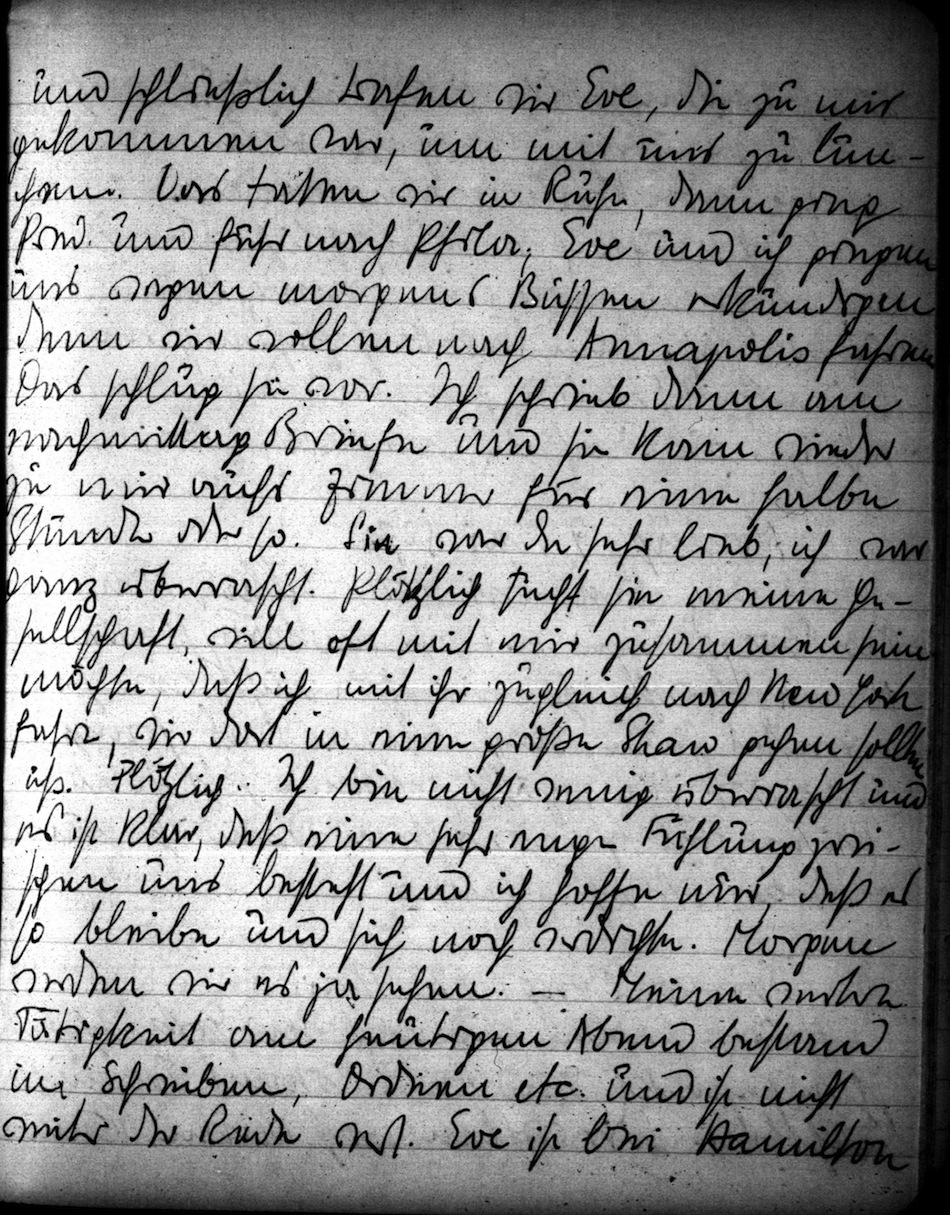 und schließlich trafen wir Eve, die zu mir
gekommen war, um mit uns zu lun-
chen. Das taten wir in Ruhe, dann ging
Pond. und fuhr nach Phila. Eve und ich gingen
uns wegen morgens Bussen erkundigen
denn wir wollen nach Annapolis fahren
Das schlug sie vor. Ich schrieb dann am
nachmittag Briefe und sie kam wieder
zu mir aufs Zimmer für eine halbe
Stunde oder so. Sie war da sehr lieb, ich war
ganz überrascht. Plötzlich sucht sie meine Ge-
sellschaft, will oft mit mir zusammen sein
möchte, daß ich mit ihr zugleich nach New York
fahre, wir dort in eine große Show gehen sollen
usf. Plötzlich. Ich bin nicht wenig überrascht und
es ist klar, daß eine sehr enge Fühlung zwi-
schen uns besteht und ich hoffe nur, daß es
so bleibe und sich noch verdichte. Morgen
werden wir es ja sehen. — Meine weitere
Tätigkeit am heutigen Abend bestand
im Schreiben, Ordnen etc. und ist nicht
weiter der Rede wert. Eve ist bei Hamilton